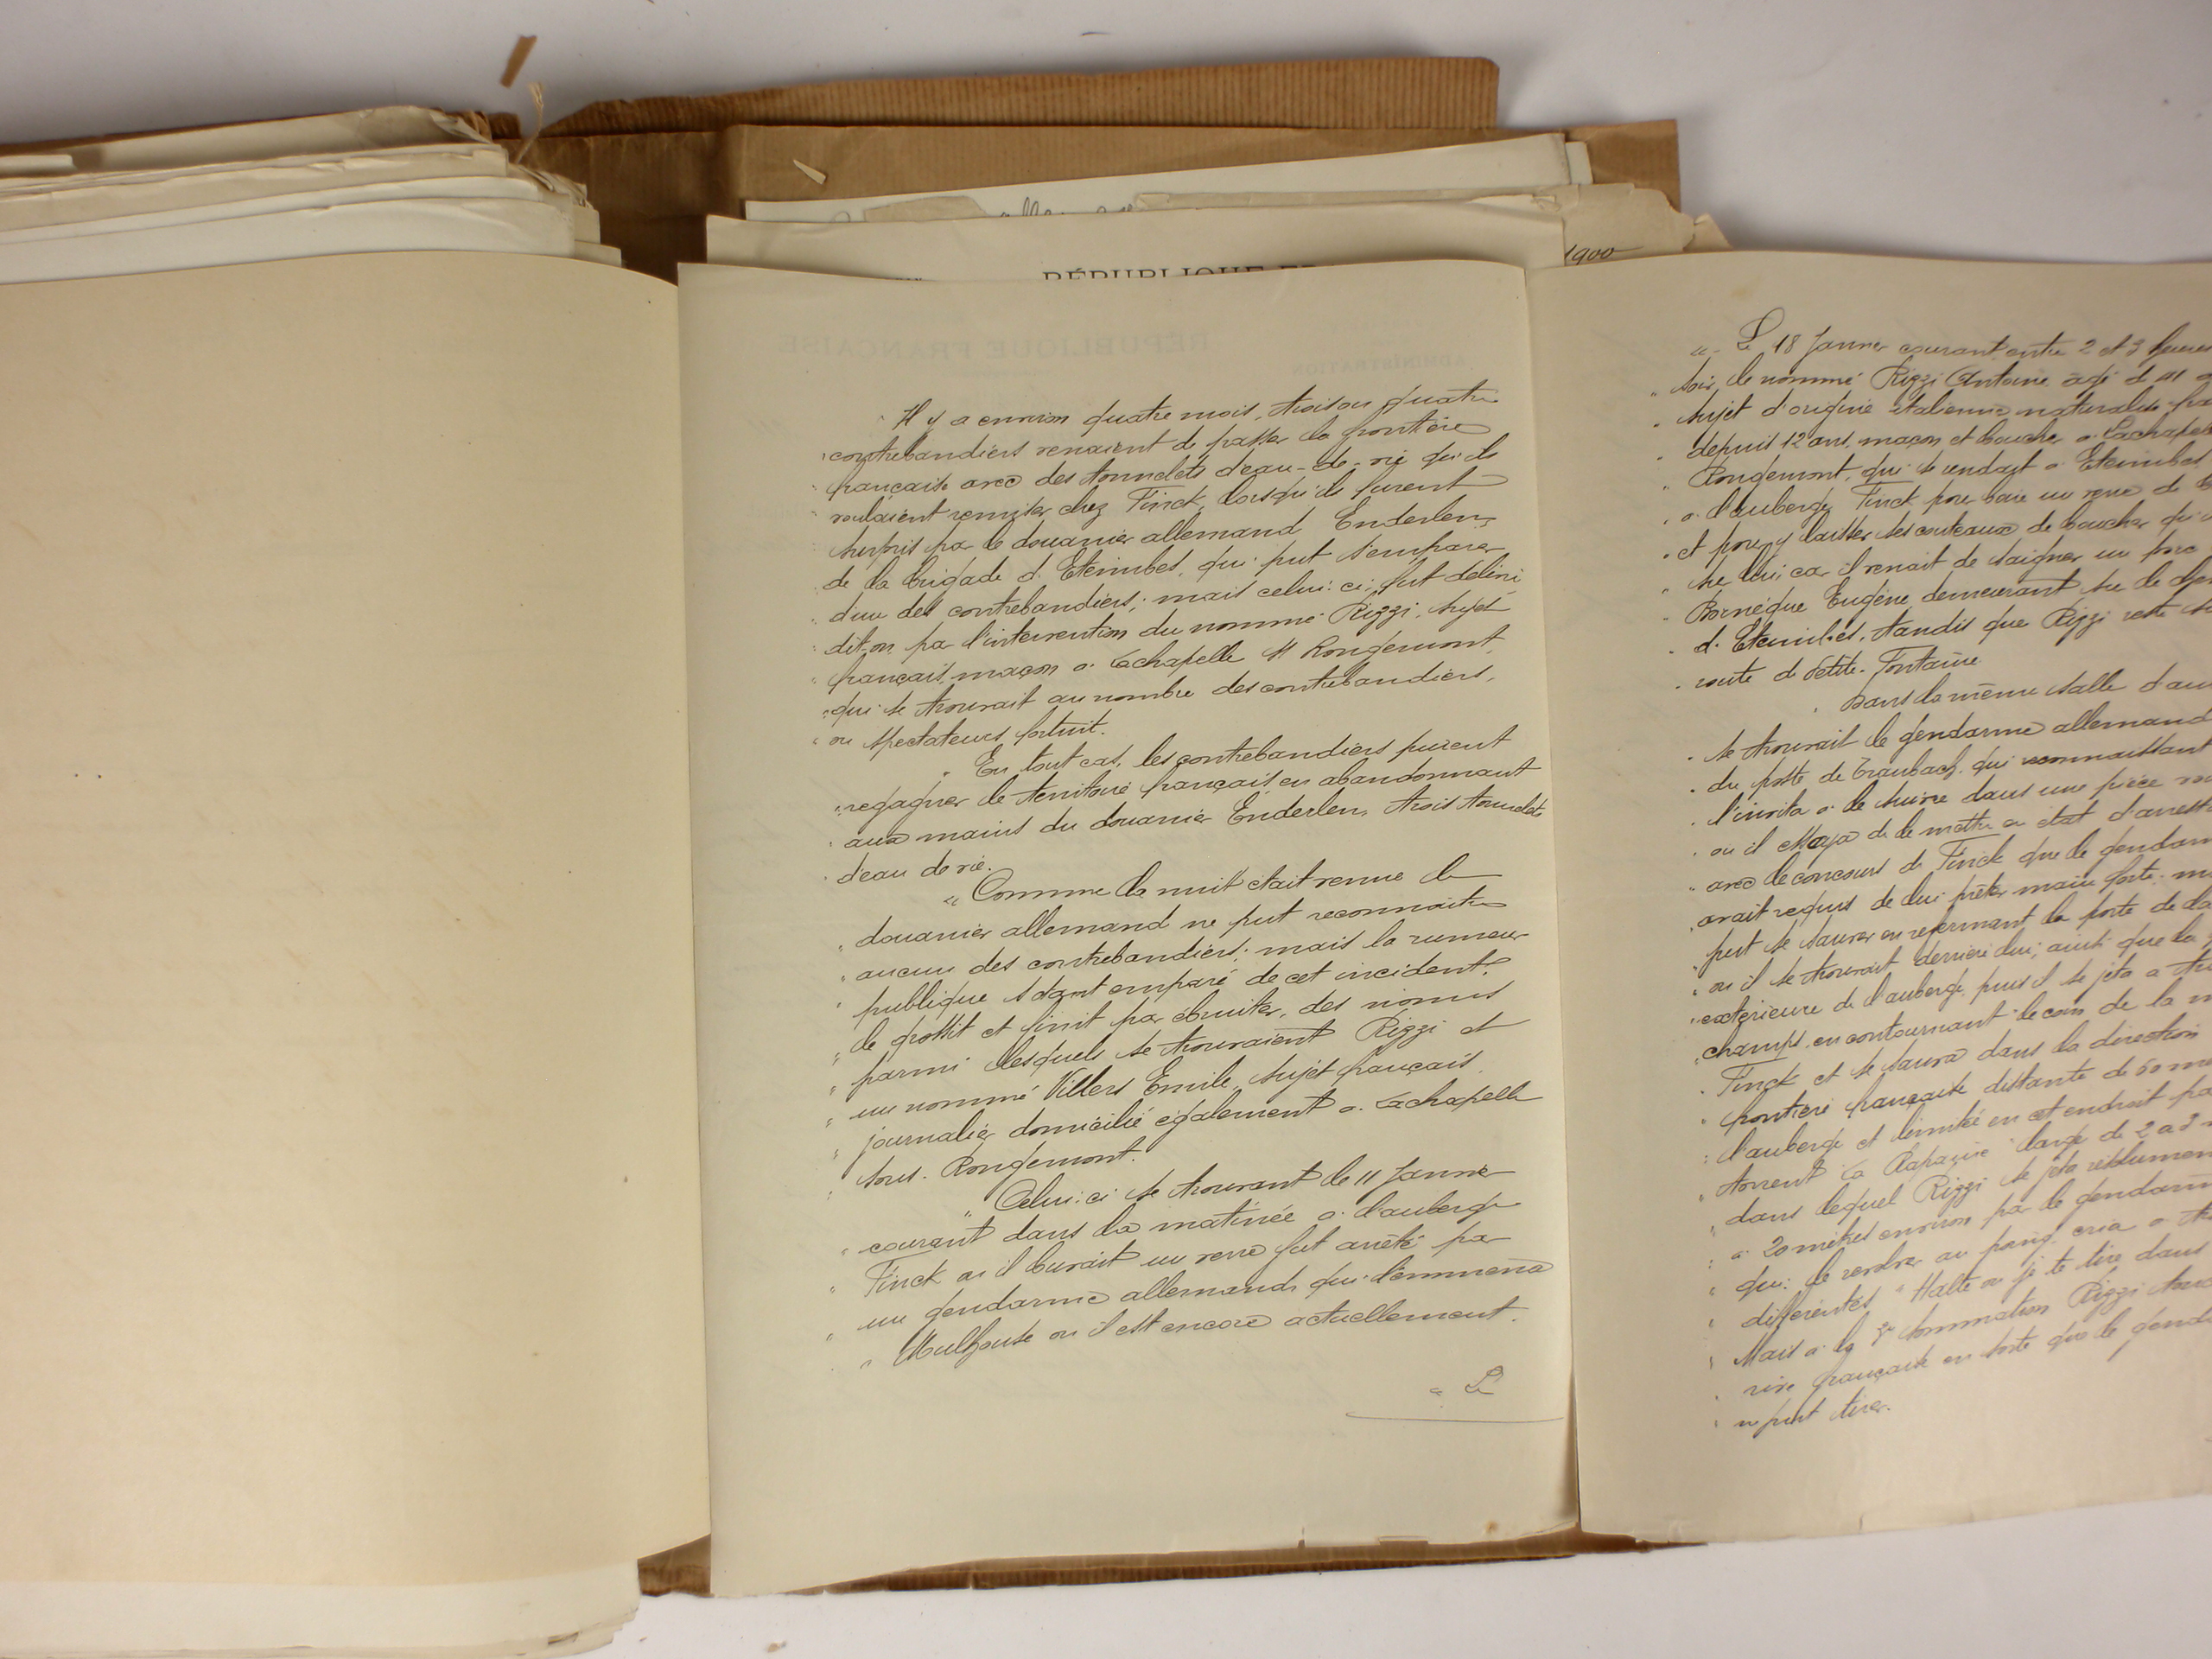 1900
RÉPUBLIQUE
" Il y a environ quatre mois, trois ou quatre
" contrebandiers venaient de passer la frontière
" française avec des tonnelets d'eau-de-vie qu'ils
" voulaient remiser chez Finck, lorsqu'ils furent
" surpris par le douanier allemand Enderlen,
" de la brigade d'Eteimbes, qui put s'emparer
" d'un des contrebandiers; mais celui-ci, fut délivré
" dit-on, par l'intervention du nommé Rizzi, sujet
" français, maçon à Lachapelle s/s Rougemont,
" qui se trouvait au nombre des contrebandiers,
" ou spectateurs fortuit.
" En tout cas, les contrebandiers purent
" regagner le territoire français en abandonnant
" aux mains du douanier Enderlen, trois tonnelets
" d'eau de vie.
" Comme la nuit était venue le
" douanier allemand ne put reconnaitre
" aucun des contrebandiers; mais la rumeur
" publique s'étant emparé de cet incident,
" le grossit et finit par ébruiter, des noms
" parmi lesquels se trouvaient Rizzi et
" un nommé Villers Emile, sujet français,
" journalier domicilié également à Lachapelle
" sous-Rougemont.
" Celui-ci se trouvant le 11 Janvier
" courant dans la matinée à l'auberge
" Finck où il buvait un verre fut arrêté par
" un gendarme allemand, qui l'emmena à
" Mulhouse où il est encore actuellement.
" Le
" Le 18 Janvier courant entre 2 et 3 heures
" soir, le nommé Rizzi Antoine, âgé de 41
" sujet d'origine italienne naturalisé
" depuis 12 ans, maçon et boucher à Lachapelle
" Rougemont, qui se rendait à Eteimbes,
" à l'auberge Finck pour boire un verre de
" et pour y laisser ses couteaux de boucher qu'il
" sur lui car il venait de saigner un porc
" Bornèque Eugène, demeurant sur le
" d'Eteimbes, tandis que Rizzi reste
" route de Petite-Fontaine
" Dans la même salle
" se trouvait le gendarme allemand
" du poste de Traubach, qui reconnaissant
" l'invita à le suivre dans une pièce
" où il essaya de le mettre en état
" avec le concours de Finck que le
" avait requis de lui prêter main forte;
" put se sauver en refermant la porte de la
" où il se trouvait derrière lui, ainsi que la
" extérieure de l'auberge, puis il se jeta à
" champs en contournant le coin de la
" Finck et se sauva dans la direction
" frontière française distante de 60
" l'auberge et limitée en cet endroit
" torrent "La large de 2 à 3
" dans lequel Rizzi se jeta
" à 20 mètres environ par le gendarme
" qui, le revolver au poing, cria à
" différentes "Halte ou je te tire dans
" Mais à la 3e sommation Rizzi
" rive française en sorte que le
" ne put tirer.